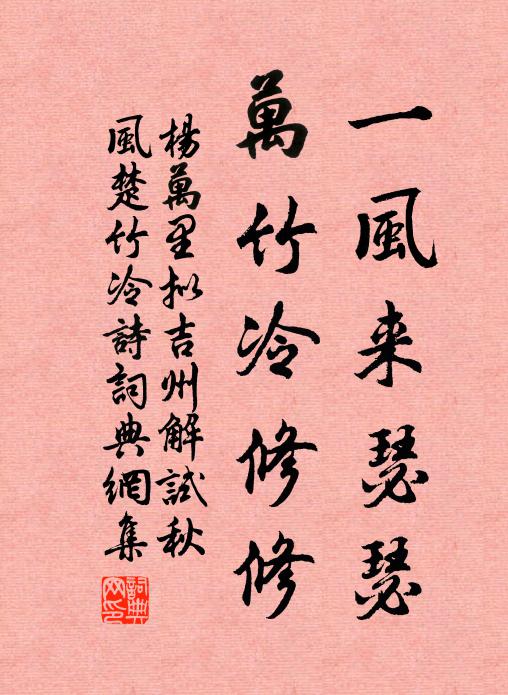 一風来瑟瑟
萬竹冷修修
楊萬里拟吉州解試秋
風楚竹冷詩詞典網集
詞典網印